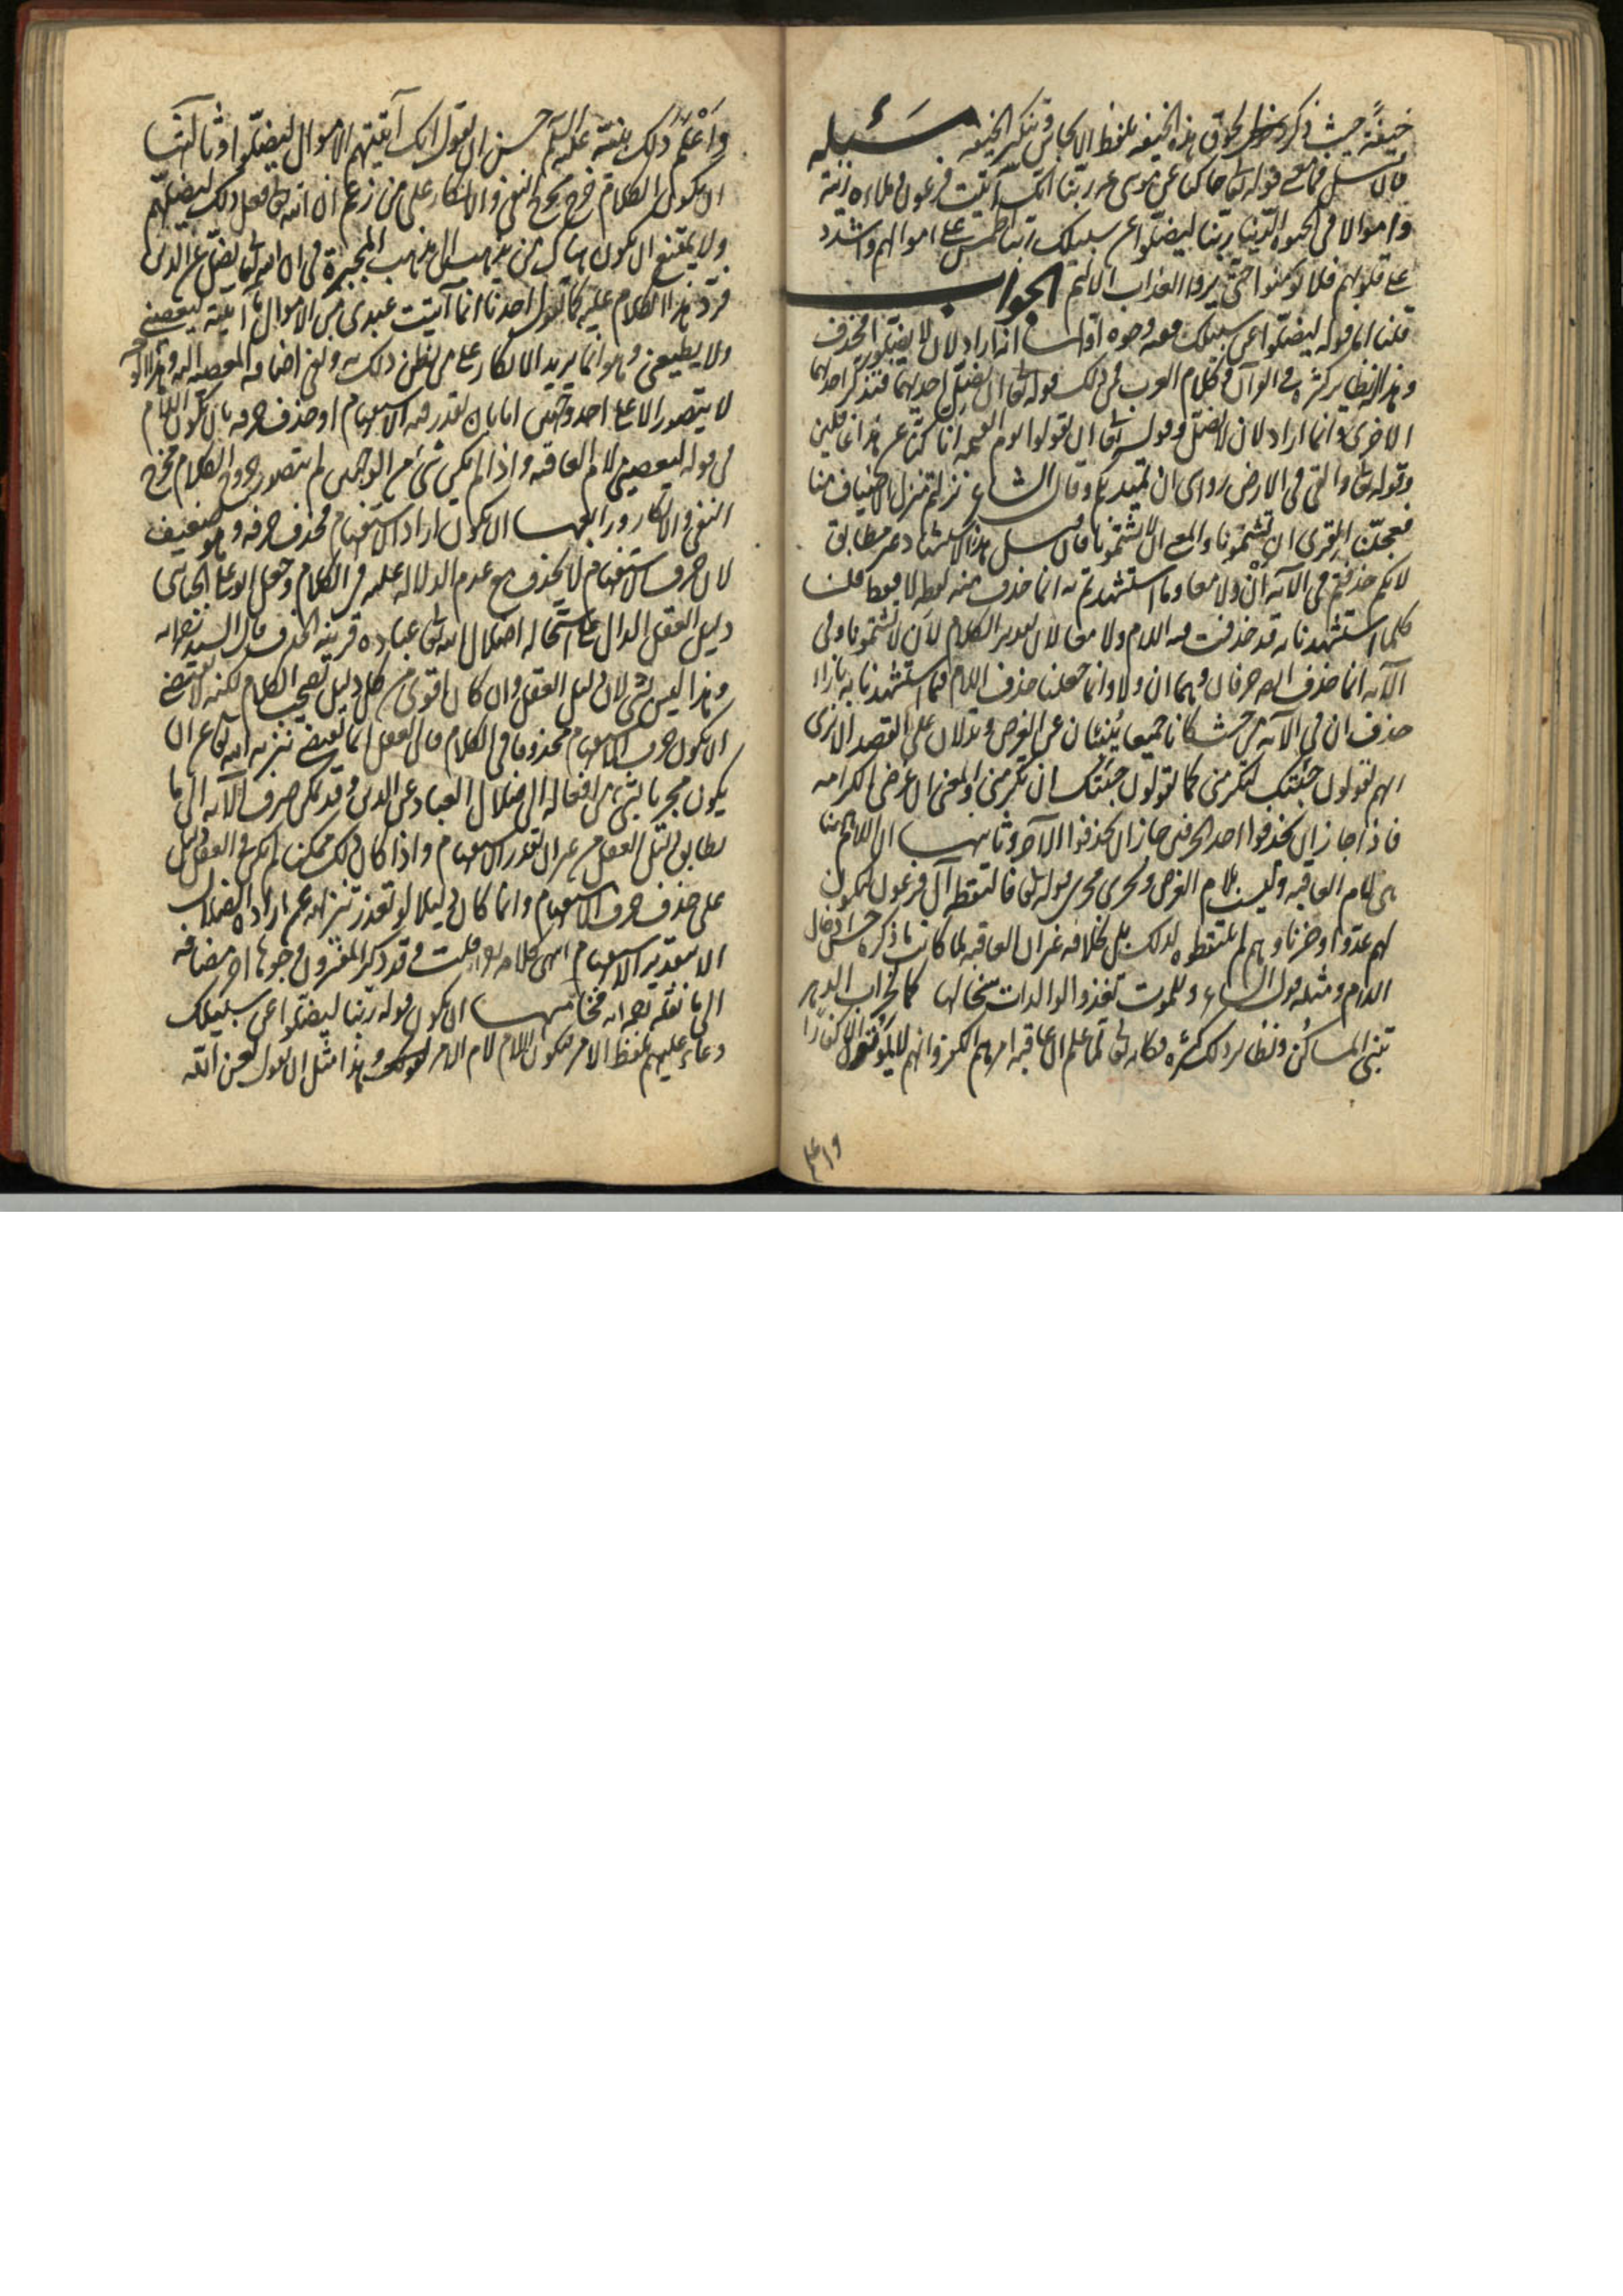 خيفة حيث ذكر لحوق هذه الخيفه بلفظ الايجاس وتنكير الخيفه مسئله
فان سئل فما معنى قوله تعالى حاكيا عن موسى ربنا انك آتيت فرعون وملاءه زينة
واموالا فى الحيوة الدنيا ربنا ليضلوا عن سبيلك ربنا اطمس على اموالهم واشدد
على قلوبهم فلا يؤمنوا حتى يروا العذاب الاليم الجواب
قلنا اما قوله ليضلوا عن سبيلك ففيه وجوه اولها انه اراد لان لا يضلوا فحذف
وهذا له نظاير كثيرة فى القرآن وكلام العرب فمن ذلك قوله تعالى ان تضل احديهما فتذكر احديهما
الاخرى وانما اراد لان لا تضل وقوله تعالى ان تقولوا يوم القيمه انا كنا عن هذا غافلين
وقوله تعالى والقى فى الارض رواسى ان تميد بكم وقال الشاعر نزلتم منزل الاضياف منا
فعجلنا القرى ان تشتمونا والمعنى ان لا تشتمونا فان سئل هذا الاستشهاد غير مطابق
لانكم حذفتم فى الآيه ان ولا معا وما استشهدتم به انما حذف منه لفظه لا فقط قلنا
كلما استشهدنا به قد حذفت منه اللام ولا معا لان تقدير الكلام لان لا تشتمونا وفى
الآيه انما حذف ايضا حرفان وهما ان ولا وانما جعلنا حذف اللام فيما استشهدنا به بازاء
حذف ان فى الآيه من حيث كانا جميعا ينبئان عن الغرض ويدلان على القصد الا ترى
انهم يقولون جئتك لتكرمنى كما يقولون جئتك ان تكرمنى والمعنى ان غرضى الكرامه
فاذا جاز ان يحذفوا احد الحرفين جاز ان يحذفوا الآخر وثانيها ان اللام هنا
هى لام العاقبه وليست بلام الغرض ويجرى مجرى قوله تعالى فالتقطه آل فرعون ليكون
لهم عدوا وحزنا وهم لم يلتقطوه لذلك بل لخلافه غير ان العاقبه لما كانت ما ذكره حسن ادخال
اللام ومثله قول الشاعر وللموت تغذو الوالدات سخالها كما لخراب الدهر
تبنى المساكن ونظاير ذلك كثيره فكانه تعالى لما علم ان عاقبه امرهم الكفر وانهم لا يموتون الا كفارا
١٩ع
واعلم ذلك بنيته عليه السلم حسن ان يقول انك آتيتهم الاموال ليضلوا وثالثها
ان يكون الكلام خرج مخرج النفى والانكار على من زعم ان الله تعالى فعل ذلك ليضلهم
ولا يمتنع ان يكون هناك من يذهب الى مذهب المجبرة فى ان الله تعالى يضل عن الدين
فرد بهذا الكلام عليه كما يقول احدنا انما آتيت عبدى من الاموال ما آتيته ليعصينى
ولا يطيعنى وهو انما يريد الانكار على من يظن ذلك به ونفى اضافه المعصيه اليه وهذا الوجه
لا يتصور الا على احد وجهين اما بان يقدر فيه الاستفهام او حذف حرفه بان يكون اللام
فى قوله ليعصينى لام العاقبه واذا لم يكن شئ من الوجهين لم يتصور خروج الكلام مخرج
النفى والانكار ورابعها ان يكون اراد الاستفهام فحذف حرفه وهو ضعيف
لان حرف الاستفهام لا يحذف مع عدم الدلاله عليه فى الكلام وجعل ابو على الجبائى
دليل العقل الدال على استحاله اضلال الله تعالى عباده قرينه الحذف قال السيد
وهذا ليس بشئ لان دليل العقل وان كان اقوى من كل دليل يصحب الكلام لكنه لا يقتضى
ان يكون حرف الاستفهام محذوفا فى الكلام فان العقل انما يقتضى تنزيه الله تعالى عن ان
يكون مجريا بشئ من افعاله الى ضلال العباد عن الدين وقد يمكن صرف الآيه الى ما
يطابق دليل العقل من غير ان يقدر الاستفهام واذا كان ذلك ممكنا لم يكن فى العقل دليل
على حذف حرف الاستفهام وانما كان دليلا لو تعذر تنزيهه عن اراده الضلال
الا بتقدير الاستفهام انتهى كلامه قلت وقد ذكر المفسرون وجوها اخر مضافه
الى ما نقله فخامسها ان يكون قوله ربنا ليضلوا عن سبيلك
دعاء عليهم بلفظ الامر فيكون اللام لام الامر وهذا مثل ان يقول لعن الله